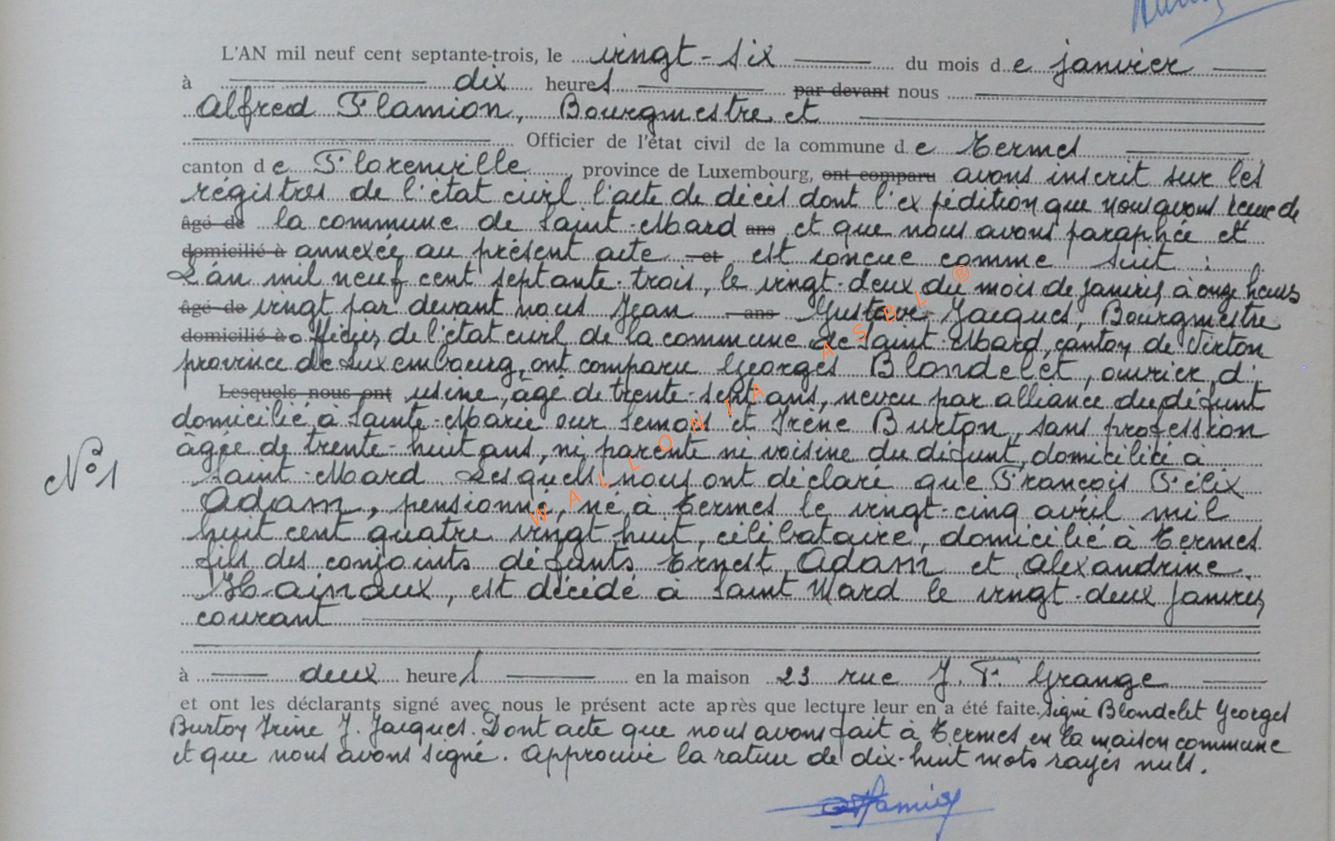 L'AN mil neuf cent septante-trois, le vingt-six du mois de janvier
à dix heures par devant nous
Alfred Flamion, Bourgmestre et
Officier de l'état civil de la commune de Termes
canton de Florenville, province de Luxembourg, ont comparu avons inscrit sur les
régistres de l'état civil l'acte de décès dont l'expédition que nous avons reçue de
âgé de la commune de Saint-Mard ans et que nous avons paraphée et
domicilié à annexée au présent acte et est conçue comme suit :
L'an mil neuf cent septante-trois, le vingt-deux du mois de janvier à onze heures
âgé de vingt par devant nous Jean ans Gustave Jacques, Bourgmestre
domicilié à officier de l'état civil de la commune de Saint-Mard, canton de Virton
province de Luxembourg, ont comparu Georges Blondelet, ouvrier d'
Lesquels nous ont usine, âgé de trente-sept ans, neveu par alliance du défunt
domicilié à Sainte-Marie sur Semois et Irène Burton, sans profession
âgée de trente-huit ans, ni parente ni voisine du défunt, domiciliée à
N°1
Saint-Mard Lesquels nous ont déclaré que François Félix
Adam, pensionné, né à Termes le vingt-cinq avril mil
huit cent quatre vingt huit, célibataire, domicilié à Termes
fils des conjoints défunts Ernest Adam et Alexandrine
Hainaux, est décédé à Saint Mard le vingt-deux janvier
courant
à deux heures en la maison 23 rue J. F. Grange
et ont les déclarants signé avec nous le présent acte après que lecture leur en a été faite, signé Blondelet Georges
Burton Irène J. Jacques. Dont acte que nous avons fait à Termes en la maison commune
et que nous avons signé. Approuvé la rature de dix-huit mots rayés nuls.
WALLONIA ASBL ®